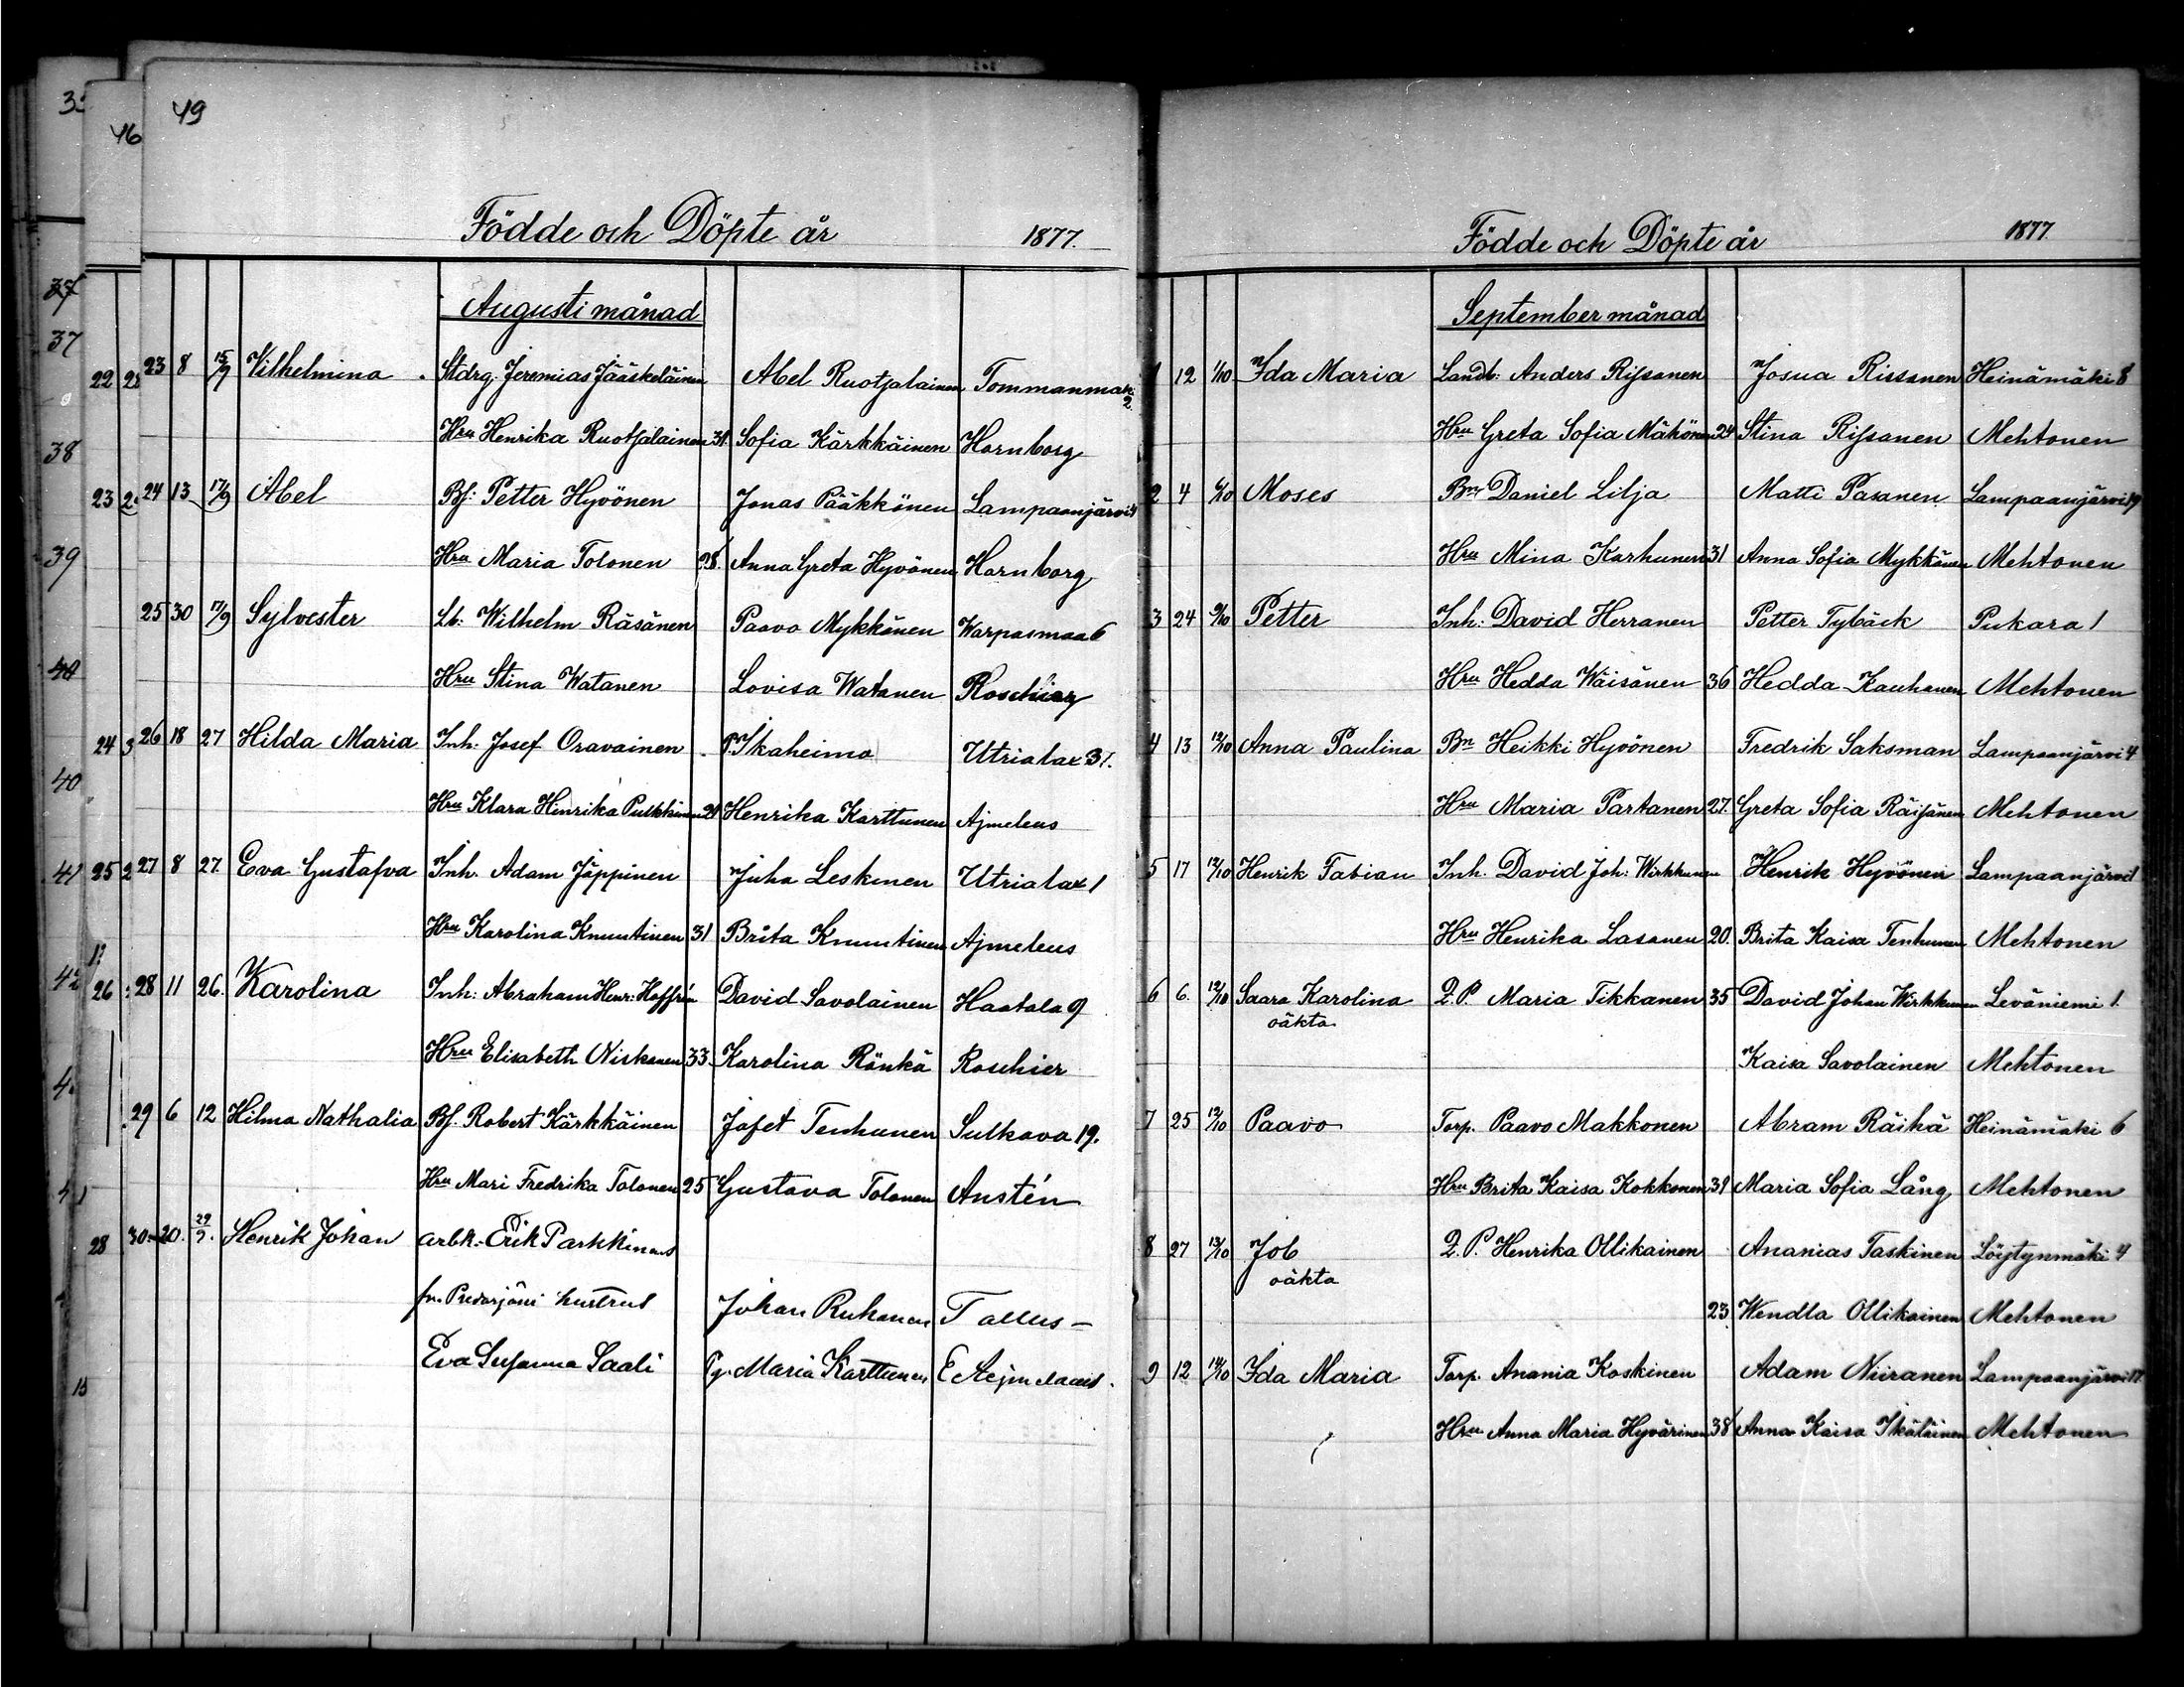 49
Födde och Döpte år 1877.
Augusti månad
23 8 15/9 Vilhelmina Stdrg. Jeremias Jääskeläinen Abel Ruotsalainen Tommanmäki 2.
Hru Henrika Ruotsalainen 31. Sofia Kärkkäinen Hornborg
24 13 17/9 Abel Bf: Petter Hyvönen Jonas Pääkkönen Lampaanjärvi 4
Hru Maria Tolonen 28. Anna Greta Hyvönen Hornborg
25 30 17/9 Sylvester Lb: Wilhelm Räsänen Paavo Mykkänen Warpasmaa 6
Hru Stina Watanen Lovisa Watanen Roschier
26 18 27 Hilda Maria Inh. Josef Oravainen P. Ikaheimo Utrialax 31.
Hru Klara Henrika Pulkkinen 24 Henrika Karttunen Ajmeleus
27 8 27. Eva Gustafva Inh. Adam Jäppinen Juha Leskinen Utrialax 1
Hru Karolina Knuutinen 31 Brita Knuutinen Ajmeleus
28 11 26. Karolina Inh: Abraham Henr: Hoffrén David Savolainen Haatala 9
Hru Elisabeth Niskanen 33 Karolina Rönkä Roschier
29 6 12 Hilma Nathalia Bf. Robert Kärkkäinen Jafet Tenhunen Sulkava 19.
Hru Mari Fredrika Tolonen 25 Gustava Tolonen Austén
30 20. 29/9. Henrik Johan arbk. Erik Parkkinens
fr. hustrus Johan Ruhanen Tallus
Eva Susanna Saali Pg. Maria Karttunen E Aejmelaeus.
Födde och Döpte år 1877.
September månad
1 12 1/10 Ida Maria Landb: Anders Rissanen Josua Rissanen Heinämäki 8
Hru Greta Sofia Mähönen 24 Stina Rissanen Mehtonen
2 4 6/10 Moses Bn Daniel Lilja Matti Pasanen Lampaanjärvi 19
Hru Mina Karhunen 31 Anna Sofia Mykkänen Mehtonen
3 24 9/10 Petter Inh: David Herranen Petter Tybäck Pukara 1
Hru Hedda Wäisänen 36 Hedda Kauhanen Mehtonen
4 13 12/10 Anna Paulina Bn Heikki Hyvönen Fredrik Saksman Lampaanjärvi 4
Hru Maria Partanen 27. Greta Sofia Räisänen Mehtonen
5 17 12/10 Henrik Fabian Inh. David Joh: Wirkkunen Henrik Hyvönen Lampaanjärvi 1
Hru Henrika Lasanen 20. Brita Kaisa Tenhunen Mehtonen
6 6. 12/10 Saara Karolina Q.P. Maria Tikkanen 35 David Johan Wirkkunen Leväniemi 1.
oäkta
Kaisa Savolainen Mehtonen
7 25 12/10 Paavo Torp. Paavo Makkonen Abram Räihä Heinämäki 6
Hru Brita Kaisa Kokkonen 39 Maria Sofia Lång Mehtonen
8 27 13/10 Job Q.P. Henrika Ollikainen Ananias Taskinen Löytynmäki 4
oäkta
23 Wendla Ollikainen Mehtonen
9 12 14/10 Ida Maria Torp. Anania Koskinen Adam Niiranen Lampaanjärvi 17
Hru Anna Maria Hyvärinen 38 Anna Kaisa Ikäläinen Mehtonen